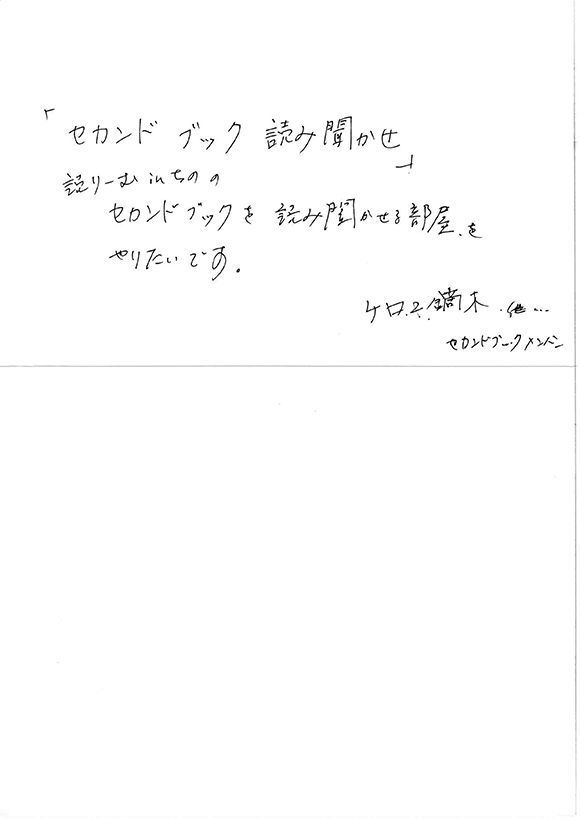 「セカンド ブック 読み聞かせ」
読りーむ inちの の
セカンドブックを 読み聞かせる部屋、を
やりたいです。
ケロヱ鏑木.他...
セカンドブックメンバー